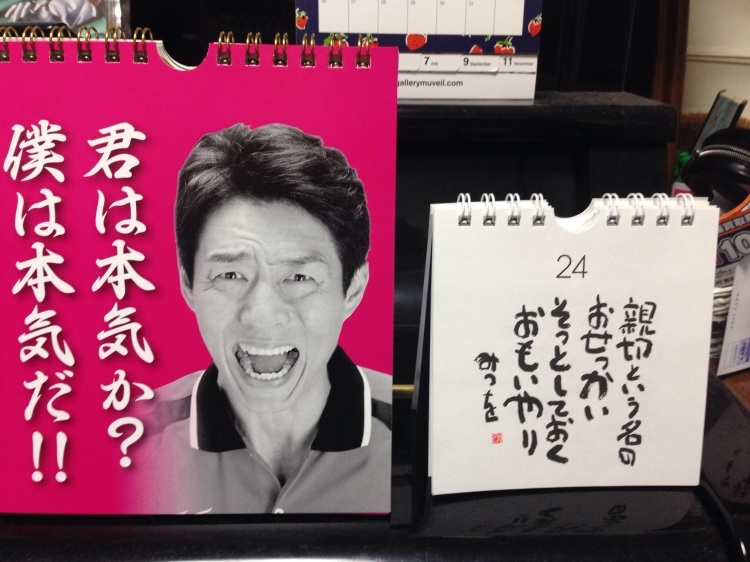 君は本気か？
僕は本気だ!!
24
親切という名の
おせっかい
そっとしておく
おもいやり
みつを
7 July
9 September
11 November
gallerymuveil.com